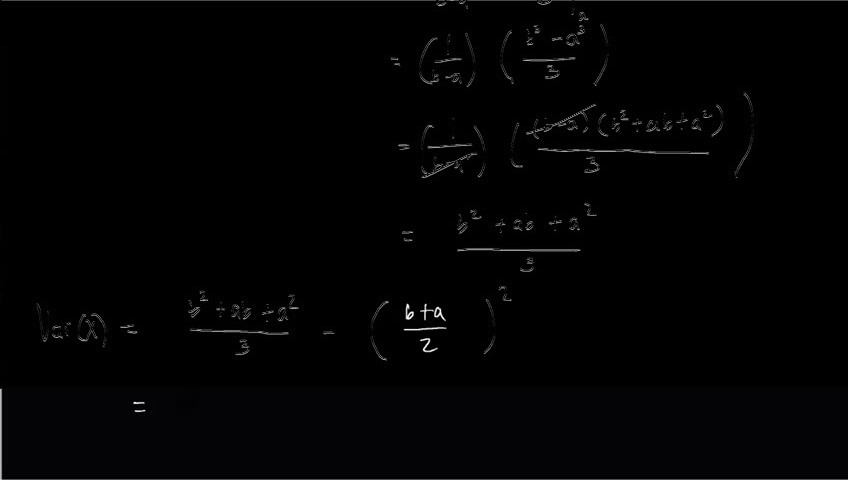 = (1/(b-a)) ((b³ - a³)/3)
= (1/(b-a)) ((b-a)(b²+ab+a²)/3)
= (b² + ab + a²)/3
Var(X) = (b² + ab + a²)/3 - ((b+a)/2)²
=